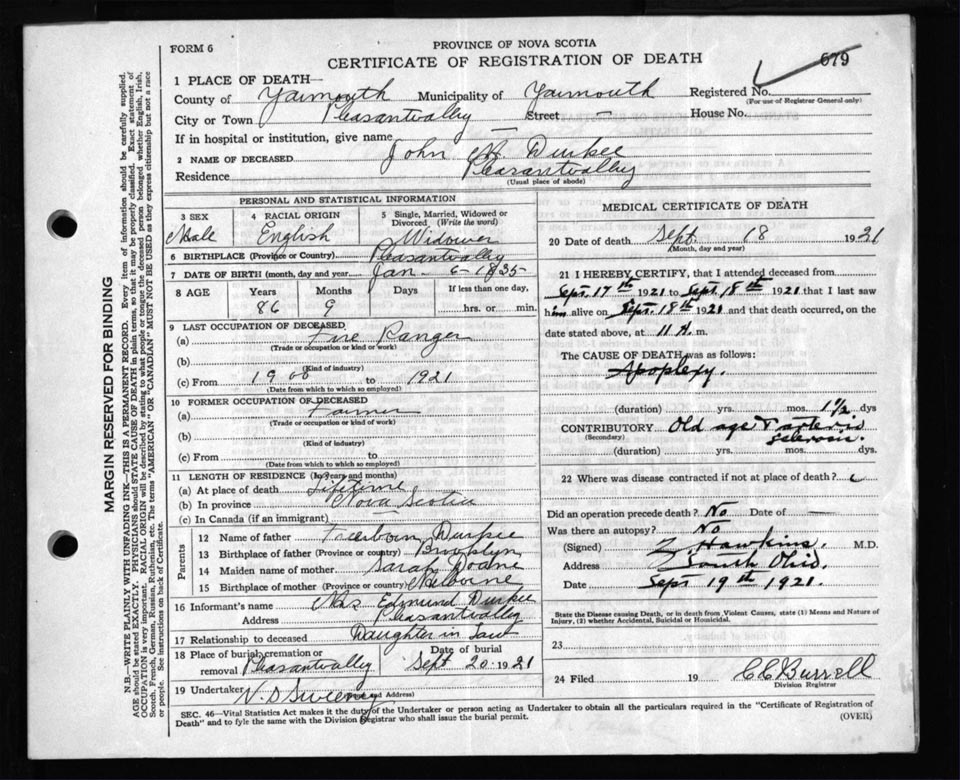 FORM 6
PROVINCE OF NOVA SCOTIA
CERTIFICATE OF REGISTRATION OF DEATH
679
1 PLACE OF DEATH—
County of Yarmouth Municipality of Yarmouth Registered No.
(For use of Registrar General only)
City or Town Pleasantvalley Street — House No.
If in hospital or institution, give name —
2 NAME OF DECEASED John H. Durkee
Residence Pleasantvalley
(Usual place of abode)
PERSONAL AND STATISTICAL INFORMATION
3 SEX 4 RACIAL ORIGIN 5 Single, Married, Widowed or Divorced (Write the word)
Male English Widower
6 BIRTHPLACE (Province or Country) Pleasantvalley
7 DATE OF BIRTH (month, day and year) Jan - 6-1835-
8 AGE Years Months Days If less than one day,
86 9 hrs. or min.
9 LAST OCCUPATION OF DECEASED
(a) Fire Ranger
(Trade or occupation or kind of work)
(b)
(Kind of industry)
(c) From 1900 to 1921
(Date from which to which so employed)
10 FORMER OCCUPATION OF DECEASED
(a) Farmer
(Trade or occupation or kind of work)
(b)
(Kind of industry)
(c) From to
(Date from which to which so employed)
11 LENGTH OF RESIDENCE (In years and months)
(a) At place of death Lifetime
(b) In province Nova Scotia
(c) In Canada (if an immigrant)
Parents
12 Name of father Durkee
13 Birthplace of father (Province or country) Brooklyn
14 Maiden name of mother Sarah Doane
15 Birthplace of mother (Province or country) Melborne
16 Informant's name Mrs Edmund Durkee
Address Pleasantvalley
17 Relationship to deceased Daughter in Law
18 Place of burial, cremation or removal Pleasantvalley Date of burial Sept 20 1921
19 Undertaker V. S Sweeney
(Name and Address)
MEDICAL CERTIFICATE OF DEATH
20 Date of death Sept. 18 1921
(Month, day and year)
21 I HEREBY CERTIFY, that I attended deceased from
Sept. 17th 1921 to Sept. 18th 1921 that I last saw
him alive on Sept. 18th 1921 and that death occurred, on the
date stated above, at 11 A. m.
The CAUSE OF DEATH was as follows:
Apoplexy.
(duration) yrs. mos. 1½ dys
CONTRIBUTORY Old age & arterio
(Secondary) sclerosis.
(duration) yrs. mos. dys.
22 Where was disease contracted if not at place of death?
Did an operation precede death? No Date of —
Was there an autopsy? No
(Signed) Z Hawkins. M.D.
Address South Ohio.
Date Sept 19th 1921.
State the Disease causing Death, or in death from Violent Causes, state (1) Means and Nature of
Injury, (2) whether Accidental, Suicidal or Homicidal.
23
24 Filed 19 C C Burrell
Division Registrar
SEC. 46—Vital Statistics Act makes it the duty of the Undertaker or person acting as Undertaker to obtain all the particulars required in the "Certificate of Registration of
Death" and to fyle the same with the Division Registrar who shall issue the burial permit.
(OVER)
MARGIN RESERVED FOR BINDING
N.B.—WRITE PLAINLY WITH UNFADING INK—THIS IS A PERMANENT RECORD. Every item of information should be carefully supplied.
AGE should be stated EXACTLY. PHYSICIANS should STATE CAUSE OF DEATH in plain terms, so that it may be properly classified. Exact statement of
OCCUPATION is very important. RACIAL ORIGIN will be described by stating to what people or tongue the deceased person belonged whether English, Irish,
Scotch, French, German, Russian, Ruthenian, etc. The terms "AMERICAN" OR "CANADIAN" MUST NOT BE USED as they express citizenship but not a race
or people. See instructions on back of Certificate.